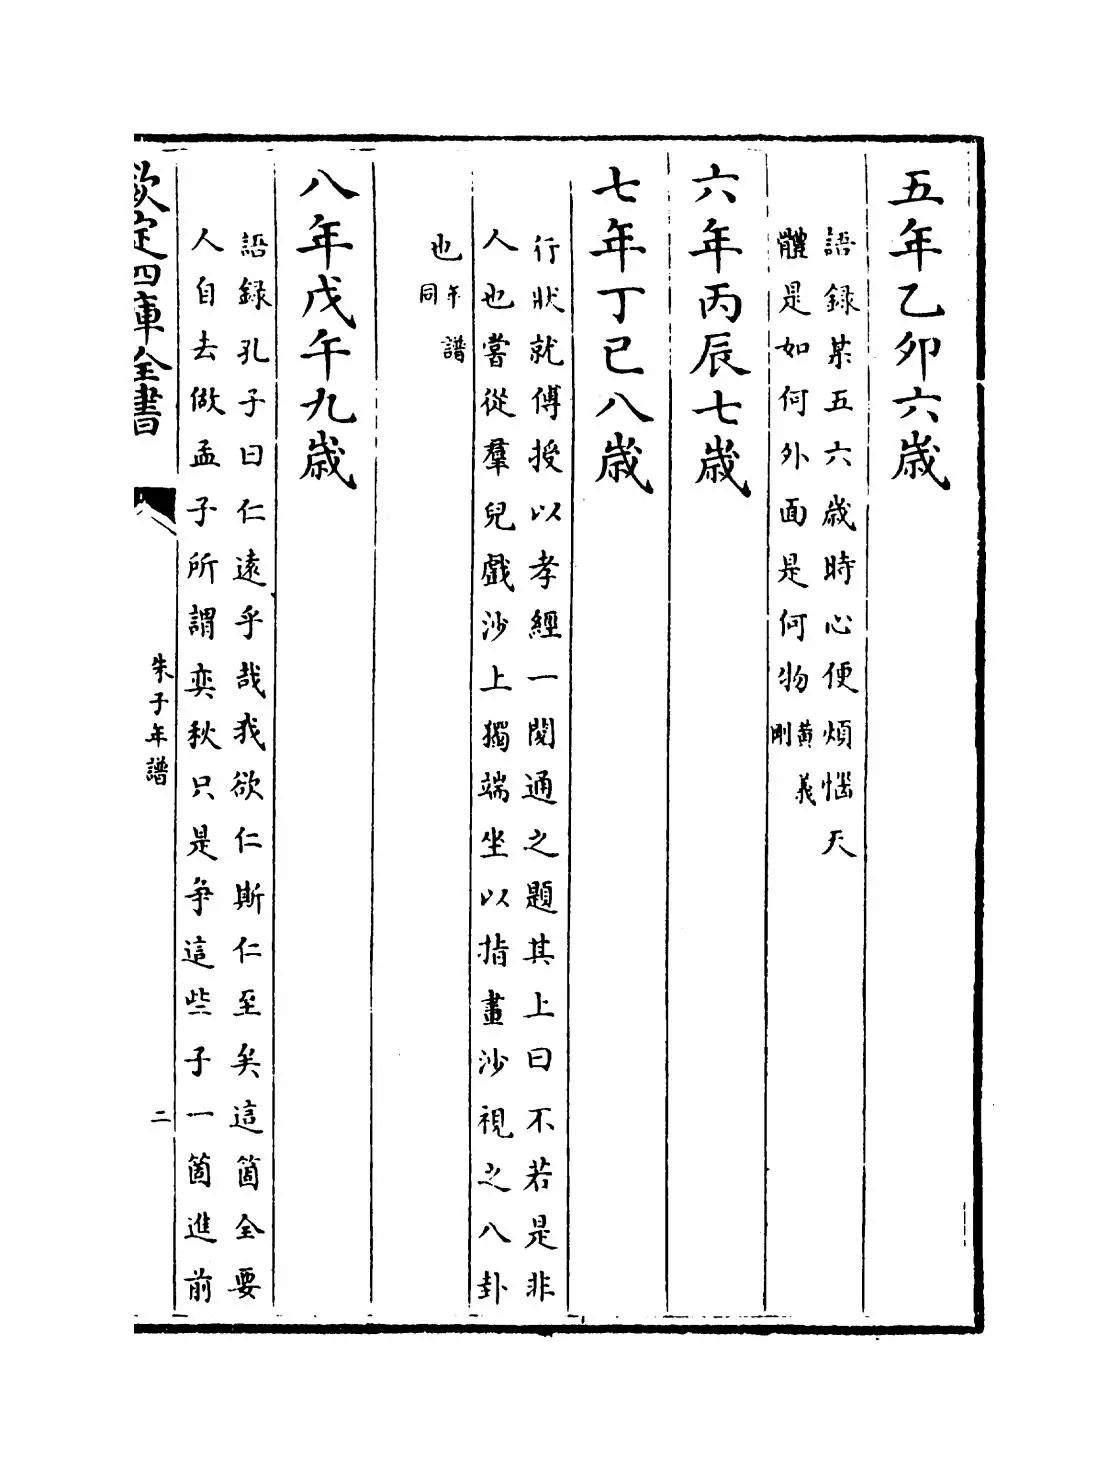 五年乙卯六歳
語録某五六歳時心便煩惱天
體是如何外面是何物黄義
剛
六年丙辰七歳
七年丁巳八歳
行狀就傅授以孝經一閱通之題其上曰不若是非
人也嘗從羣兒戲沙上獨端坐以指畫沙視之八卦
也年譜
同
八年戊午九歳
語録孔子曰仁遠乎哉我欲仁斯仁至矣這箇全要
人自去做孟子所謂奕秋只是争這些子一箇進前
欽定四庫全書
朱子年譜
二